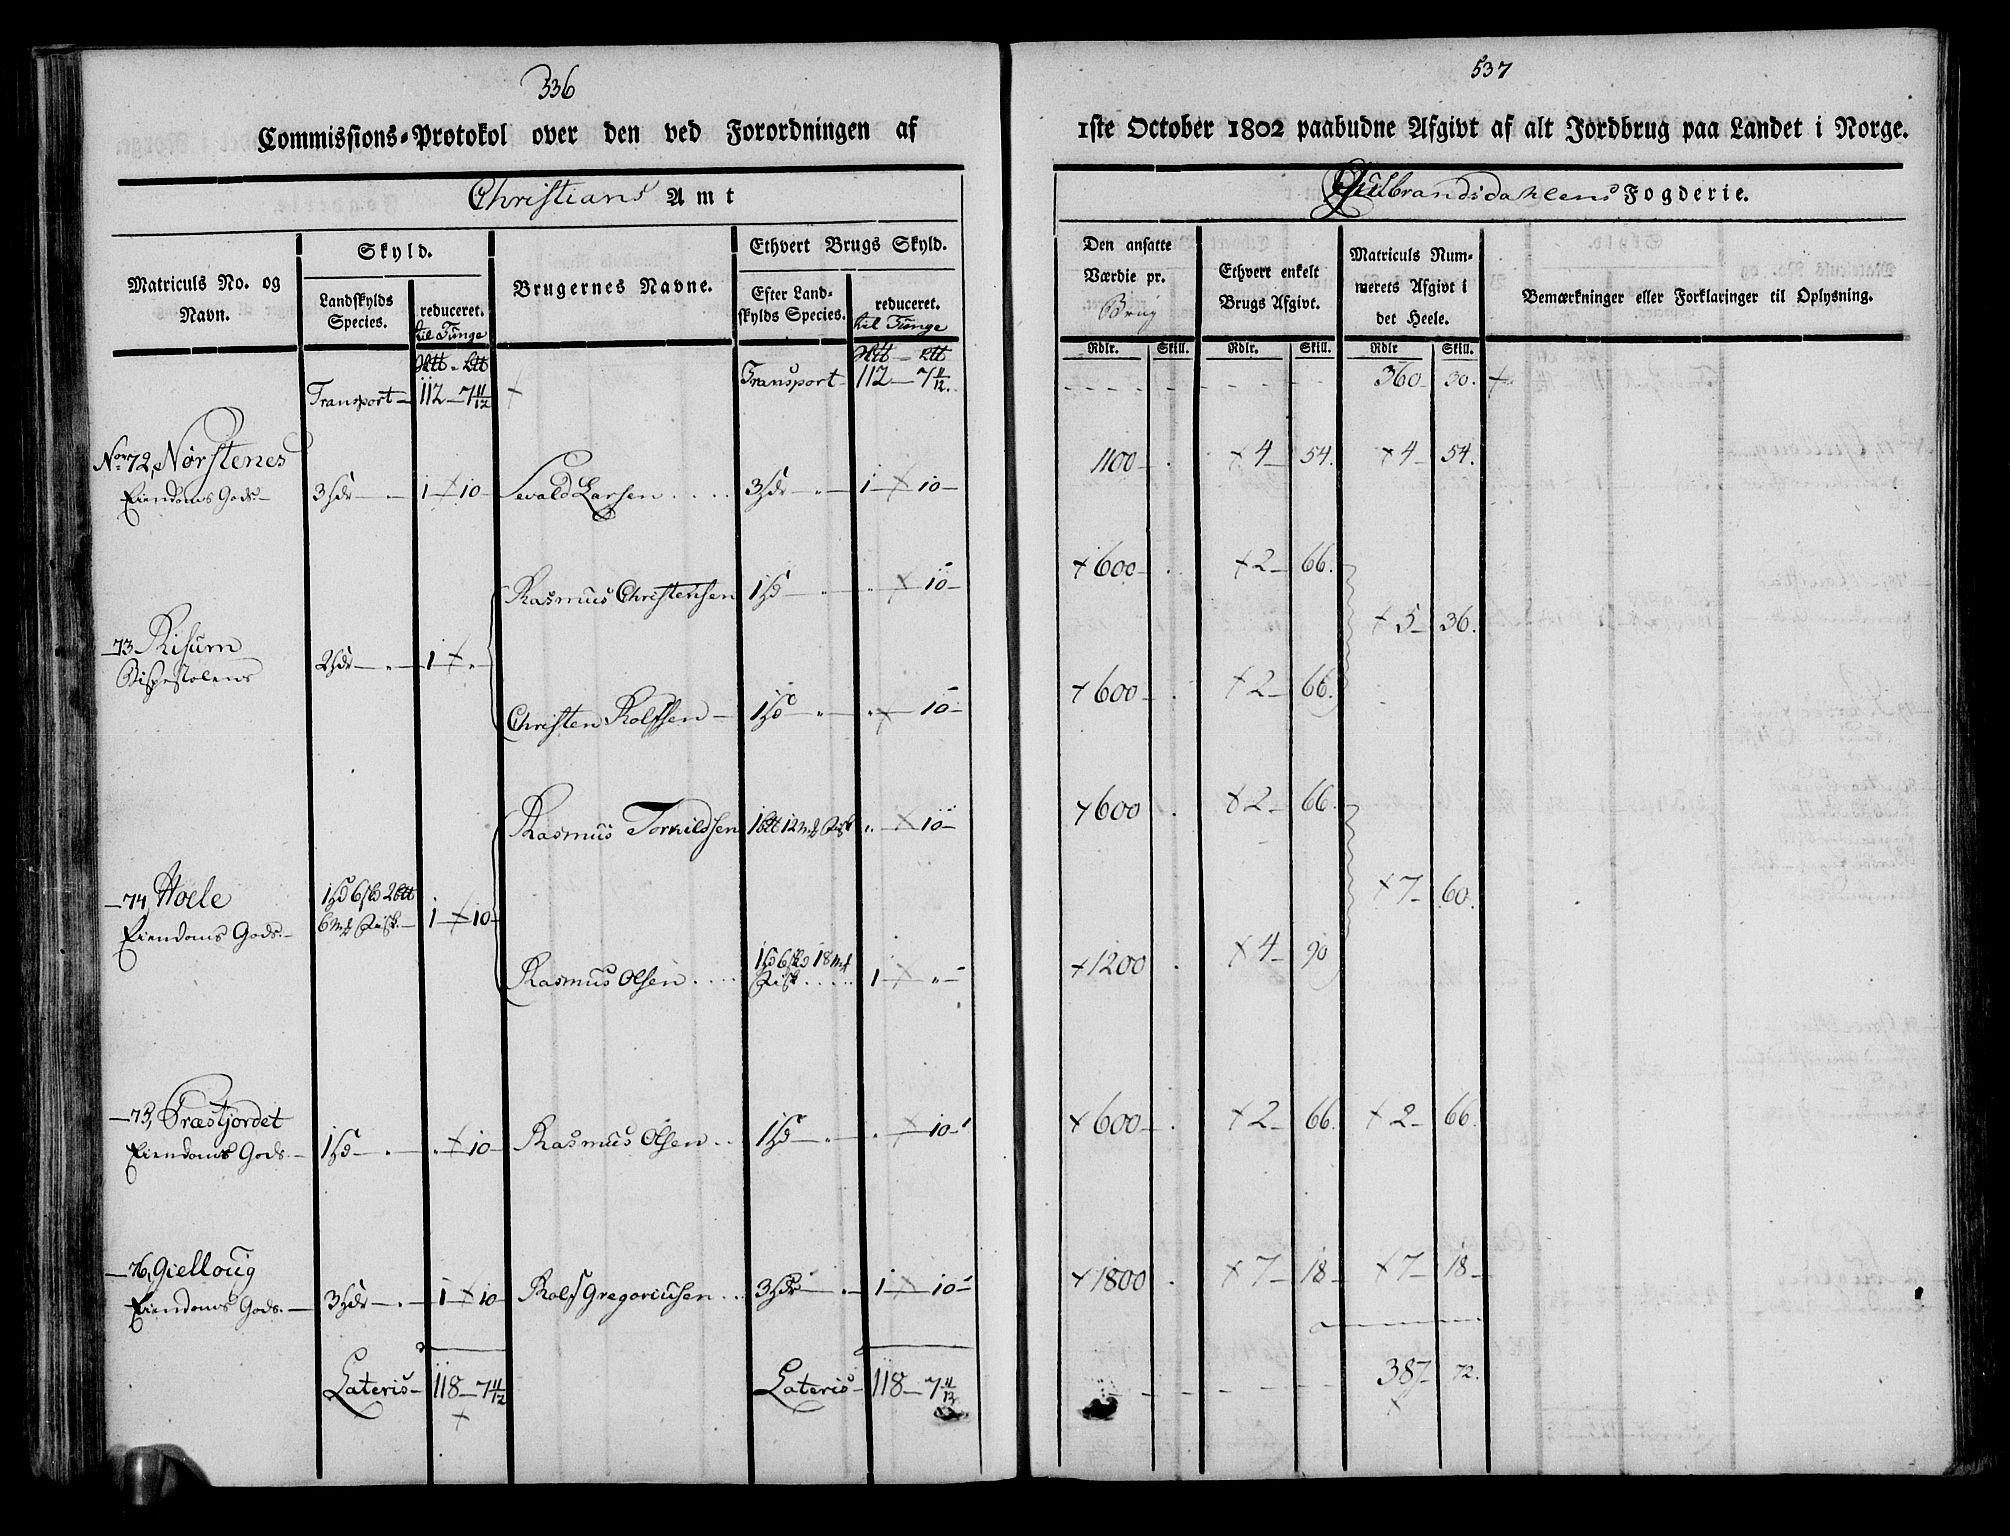 336
Commissions-Protokol over den ved Forordningen af
Christians Amt
Matriculs No. og Navn.
Skyld.
Landskylds Species.
reduceret. til Tunge
Brugernes Navne.
Ethvert Brugs Skyld.
Efter Landskylds Species.
reduceret. til Tunge
Transport 112 — 7 11/12
Transport 112 — 7 11/12
No 72, Nørstenes
Eiendoms Gods 3 Hdr — " — 1 — 10 Sevald Larsen 3 Hdr — " — 1 — 10
Rasmus Christensen 1 Hd — " — " — 10
73 Risum
Bispestolens 2 Hdr — " — 1 — "
Christen Rolfsen 1 Hd — " — " — 10
Rasmus Torkildsen 1 Ltt 12 Mk Fisk " — 10
74, Hoele
Eiendoms Gods 1 Hd 6 sk 2 Ltt
6 Mk Fisk 1 — 10
Rasmus Olsen 1 Hd 6 sk 18 Mk
Fisk 1 — "
75, Træstjordet
Eiendoms Gods 1 Hd — " — " — 10 Rasmus Olsen 1 Hd — " — " — 10
76, Gielloug
Eiendoms Gods 3 Hdr — " — 1 — 10 Rolf Gregoriusen 3 Hdr — " — 1 — 10
Lateris 118 — 7 11/12
Lateris 118 — 7 11/12
537
1ste October 1802 paabudne Afgivt af alt Jordbrug paa Landet i Norge.
Gulbrandsdahlens Fogderie.
Den ansatte Værdie pr. Brug
Ethvert enkelt Brugs Afgivt.
Matriculs Nummerets Afgivt i det Heele.
Bemærkninger eller Forklaringer til Oplysning.
Rdlr. Skill. Rdlr. Skill. Rdlr Skill.
360 30.
1100 4 54. 4 54.
600 2 66.
5 36.
600 2 66.
600 2 66.
7 60.
1200 4 90
600 2 66. 2 66.
1800 7 18 7 18
387 72.